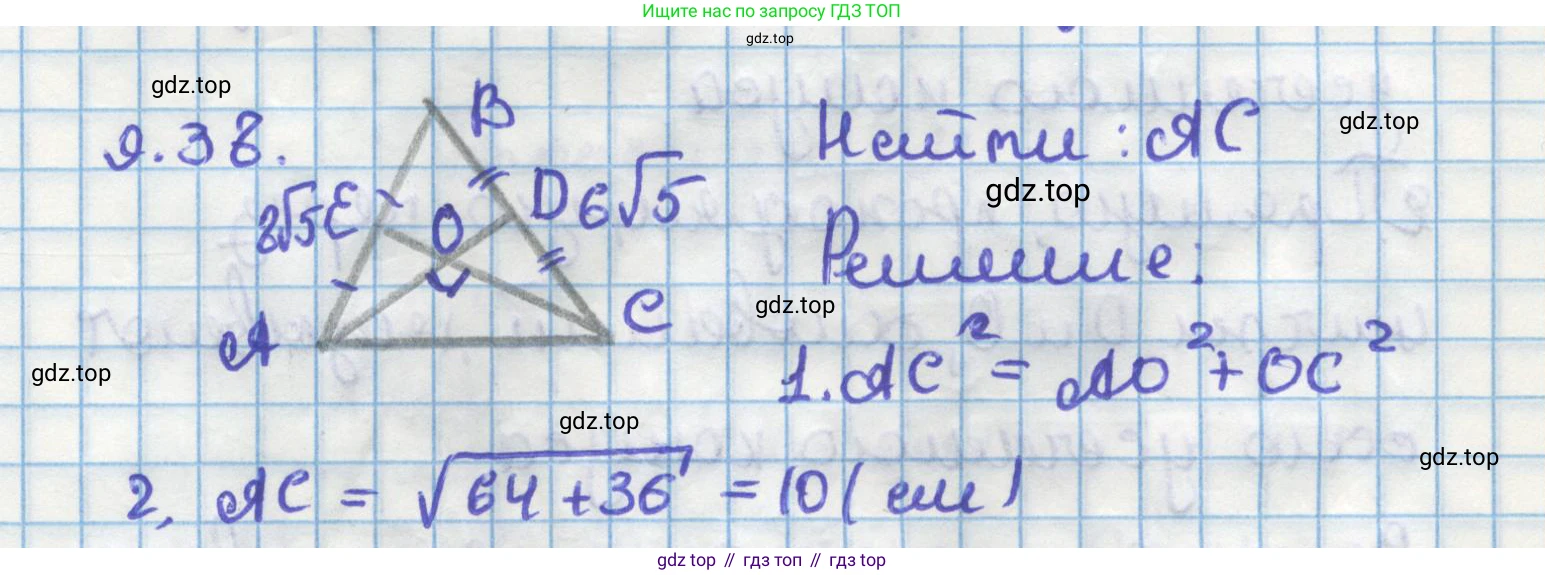 Ищите нас по запросу ГДЗ ТОП
gdz.top
gdz.top
9.38.
B
Найти: AC
gdz.top
gdz.top
2√5 E
O
D 6√5
Решение:
gdz.top
A
C
gdz.top
1. AC² = AO² + OC²
gdz.top
gdz.top
2. AC = √64 + 36 = 10 (см)
gdz.top // гдз топ // гдз top